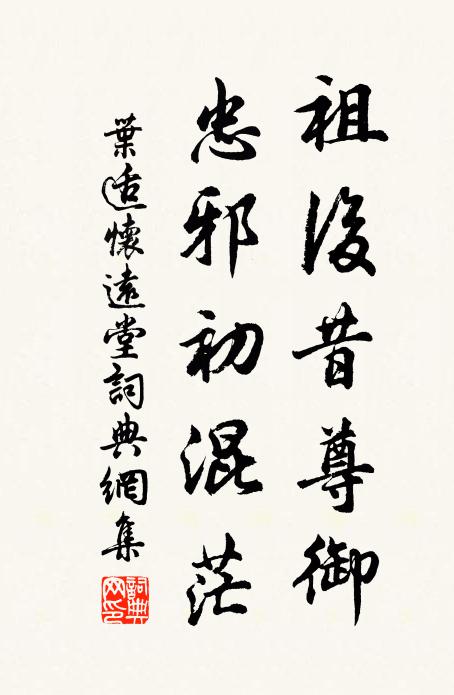 祖後昔尊御
忠邪初混茫
葉适懷遠堂詞典網集
詞典網印